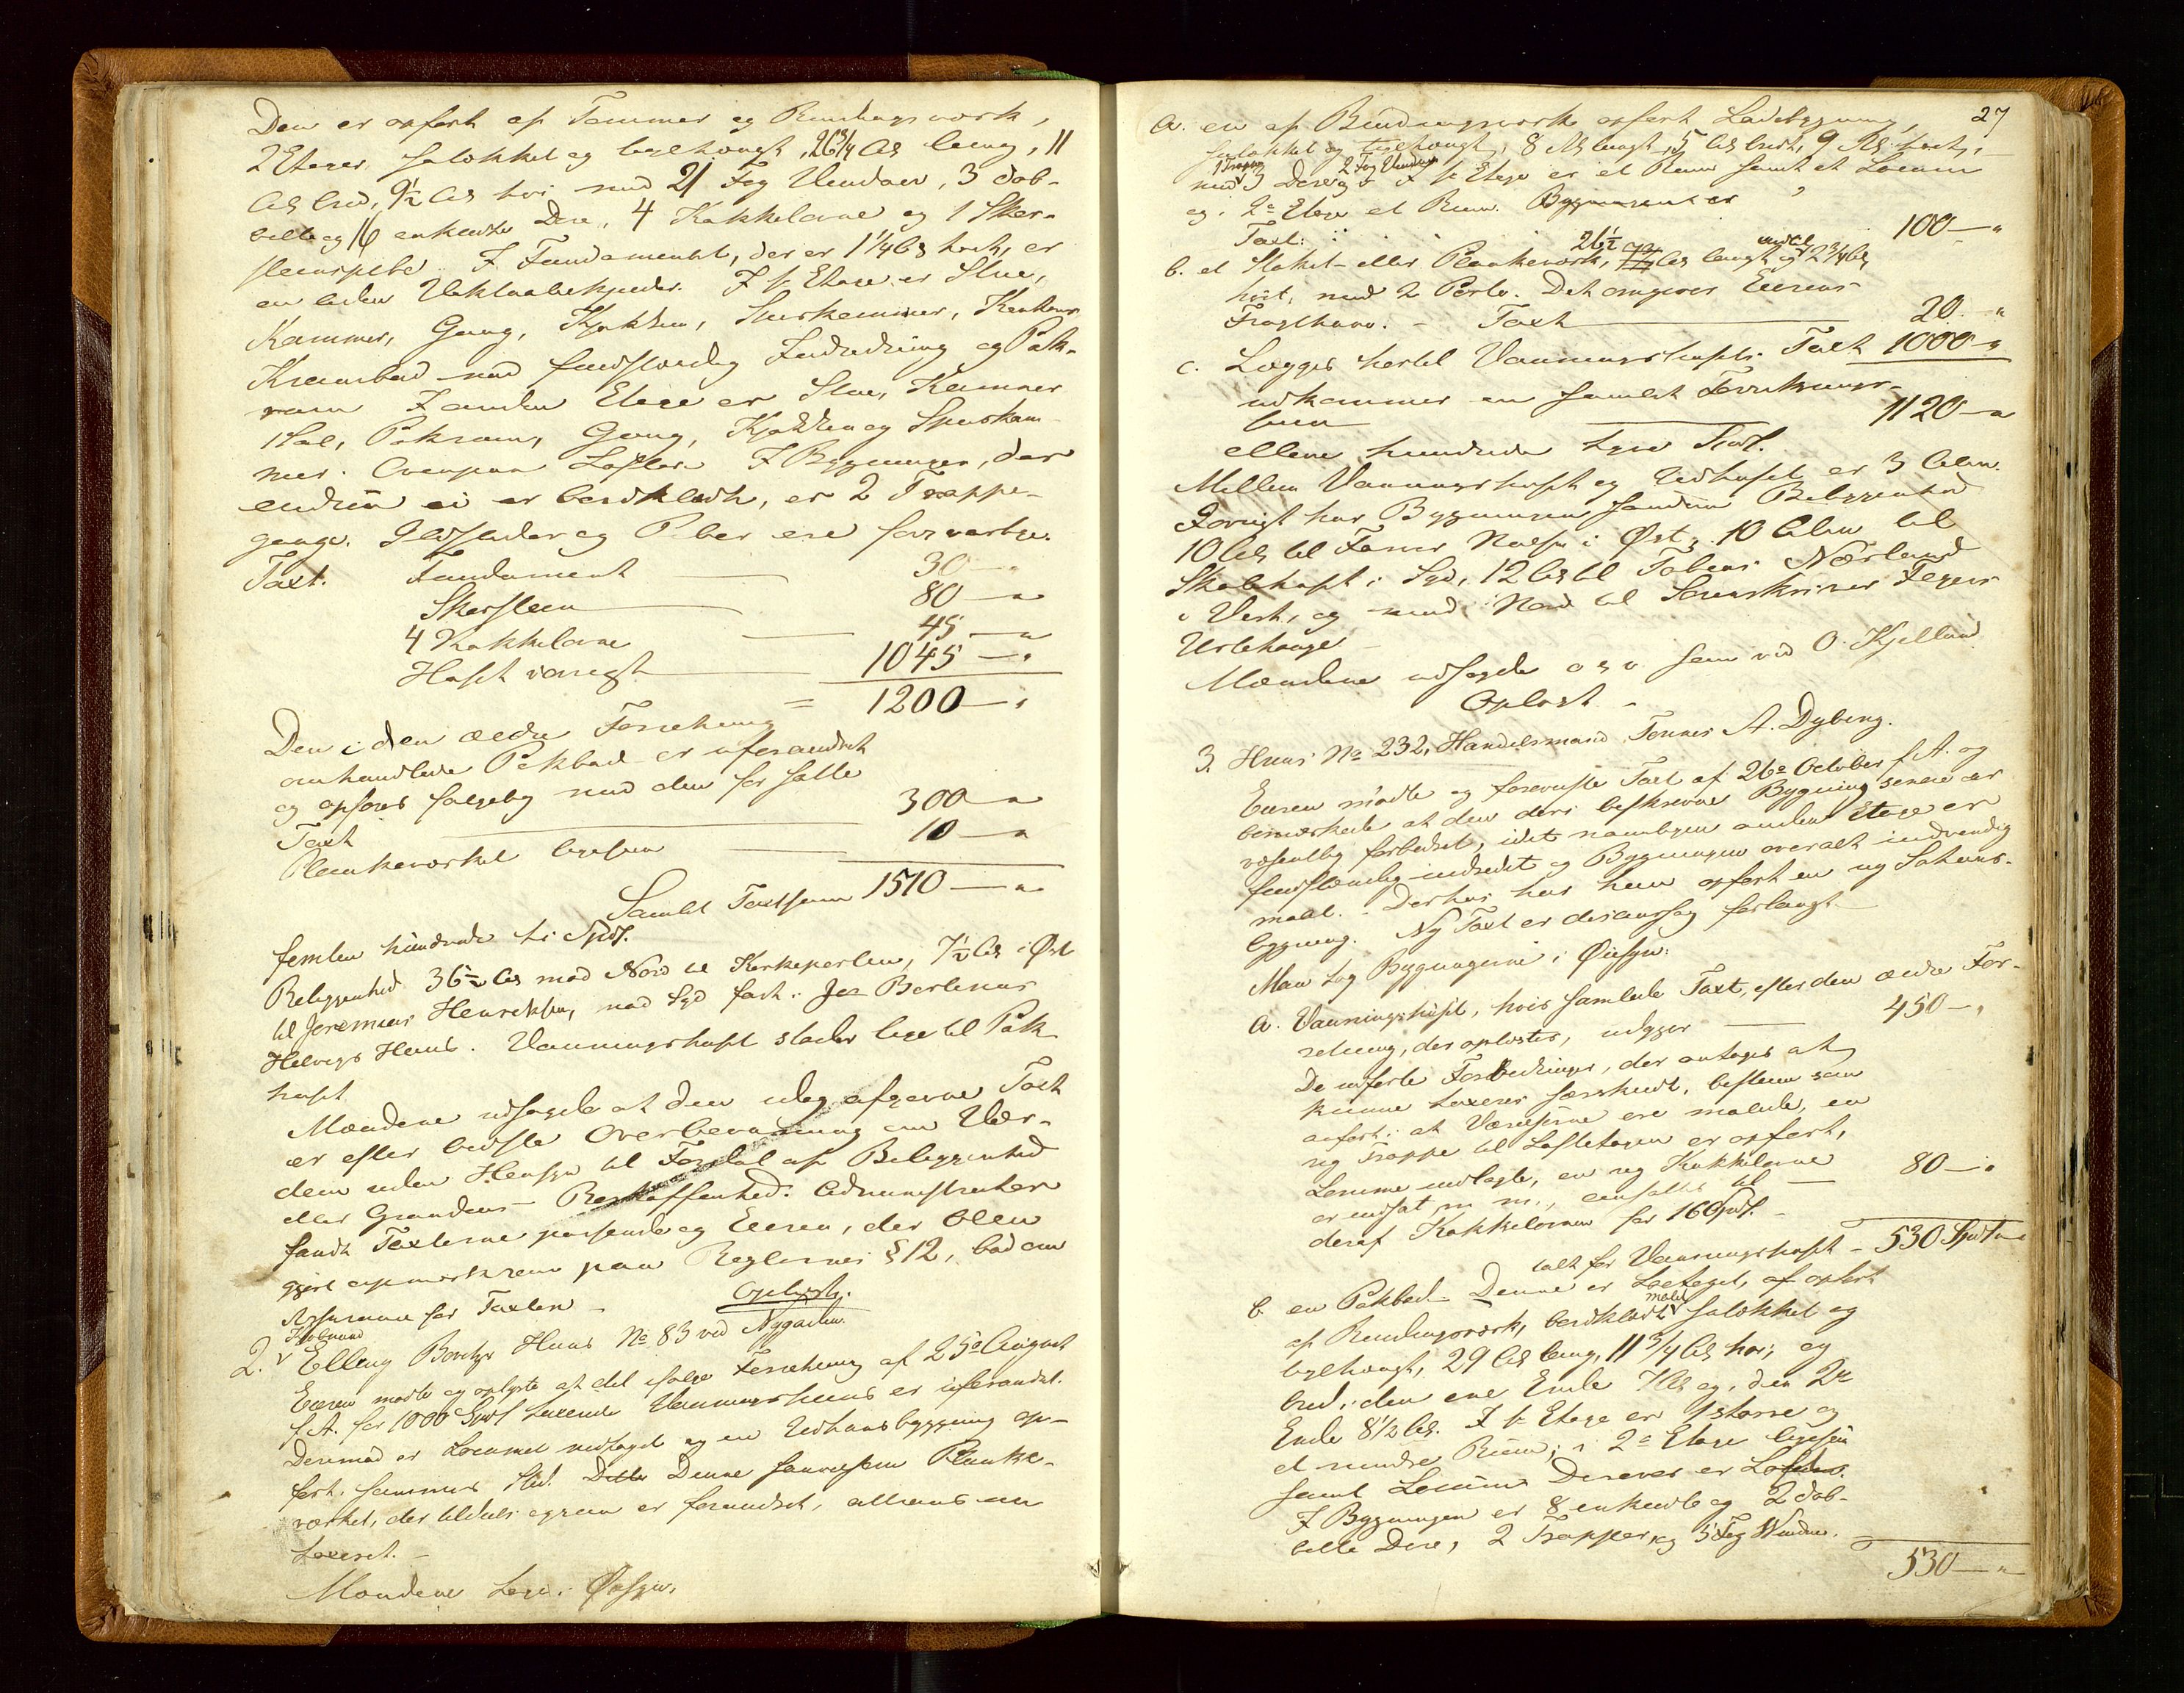 Den er opført af Tømmer og Bindingsværk,
2 Etager, paløkket og teglhængt, 26 3/4 Al. lang, 11
Al. bred, 9 1/2 Al. høi med 21 Fag Vinduer, 3 dob-
belte og 16 enkelte Døre, 4 Kakkelovne og 1 Skor-
steenspibe. I Fundamentet, der er 1 1/4 Al. høit, er
en liden Kjelder. I 1. Etage er Stue,
Kammer, Gang, Kjøkken, Spiskammer, Kontor
Krambod med fuldstændig Indredning og Pak-
rum. I anden Etage er Stue, Kammer
1 Sal, Pakrum, Gang, Kjøkken og Spiskam-
mer. Ovenpaa Loftet. I Bygningen, der
endnu ei er bordklædt, er 2 Trappe-
gange. Ildsteder og Piber ere forsvarlige.
Taxt. Fundament 30 — "
Skorsteen 80 — "
4 Kakkelovne 45 — "
Huset iøvrigt 1045 — "
= 1200 — "
Den i den ældre Forretning
omhandlede Pakbod er uforandret
og opføres følgelig med den før satte
Taxt 300 — "
Plankeværket ligesaa 10 — "
Samlet Taxtsum 1510 — "
femten hundrede ti Spdl.
Beliggenhed 36 1/2 Al. mod Nord til Kirkeporten, 7 1/2 Al. i Øst
til Jeremias Henriksen, mod Syd fast i Berlinus
Helvigs Huus. Vaaningshuset støder lige til Pak-
huset
Mændene udsagde at den idag afgivne Taxt
er efter bedste Overbeviisning om Vær-
dien uden Hensyn til Fordel af Beliggenhed
eller Grundens Beskaffenhed. Administrator
fandt Taxterne passende og Eieren, der blev
gjort opmærksom paa Reglernes § 12, bad om
Assurance for Taxten. Oplæst.
2. Elling Huus No 83 ved Nygaden.
Eieren mødte og oplyste at det ifølge Forretning af 25de August
f. A. for 1000 Spdl taxerede Vaaningshuus er uforandret.
Derimod er Locumet nedtaget og en Udhuusbygning op-
ført i sammes Sted. Denne saavelsom Planke-
værket, der tildeels ogsaa er forandret, attraaes nu
taxeret. —
Mændene toge i Øiesyn:
27
a. en af Bindingsværk opført Ladebygning,
paløkket og teglhængt, 8 Al. langt, 5 Al. bredt, 9 Al. høit,
med 1 Trappe 3 Døre og 2 Fag Vinduer. I 1. Etage er et Rum samt et Locum
og i 2den Etage et Rum.
Taxt: 100 — "
b. et Staket- eller Plankeværk, 26 1/2 Al. langt og indtil 2 3/4 Al.
høit, med 2 Porte. Det omgiver Eierens
Frugthave. — Taxt 20 — "
c. Lægges hertil Vaaningshusets Taxt 1000 — "
udkommer en samlet Forsikrings-
sum 1120 — "
elleve hundrede tyve Spdl.
Mellem Vaaningshuset og Udhuset er 3 Alen.
Iøvrigt har Bygningen saadan Beliggenhed
10 Al. til i Øst, 10 Alen til
Skolehuset i Syd, 12 Al. til Tobias Nærland
i Vest, og mod Nord til Sorenskriver Fegers
Urtehauge
Mændene udsagde o. s. v. som ved O. Kielland
Oplæst. —
3. Huus No 232, Handelsmand Tønnes A. Dyberg.
Eieren mødte og foreviiste Taxt af 26de October f. A. og
bemærkede at den deri beskrevne Bygning senere er
væsentlig forbedret, idet navnligen anden Etage er
fuldstændig indredet og Bygningen overalt indvendig
malt. Derhos har han opført en ny Søhuus-
bygning. Ny Taxt er desaarsag forlangt.
Man tog Bygningerne i Øiesyn:
a. Vaaningshuset, hvis samlede Taxt, efter den ældre For-
retning, der oplæstes, udgjør — 450 — "
De udførte Forbedringer, der antages at
kunne taxeres særskildt, bestaa som
anført i at Værelserne ere malede, en
ny Trappe til Loftetagen er opført,
Lemme indlagte, en ny Kakkelovne
er indsat m. m., ansattes til — 80 — "
deraf Kakkelovnen for 16 Spdl. —
ialt for Vaaningshuset — 530 Spdl "
b. en Pakbod. Denne er 2 etaget, af opført
af Bindingsværk, bordklædt malet paløkket og
teglhængt, 29 Al. lang, 11 3/4 Al. høi, og
bred i den ene Ende Al. og i den 2den
Ende 8 1/2 Al. I 1. Etage er 1 større og
et mindre Rum; i 2den Etage ligesaa
samt Locum. Derover er Loft.
I Bygningen er 8 enkelte og 2 dob-
belte Døre, 2 Trapper, og 5 Fag Vinduer.
530 — "